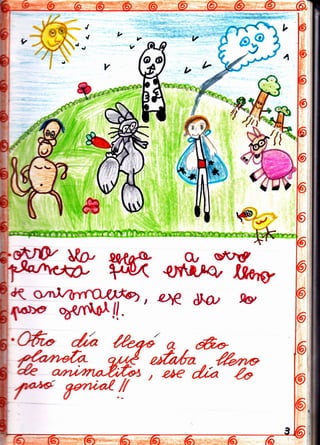 otro día llego a otro
planeta que estaba lleno
de animalitos, ese dia lo
paso genial!!.
·Otro día llegó a otro
planeta que estaba lleno
de animalitos, ese día lo
pasó genial!!
3